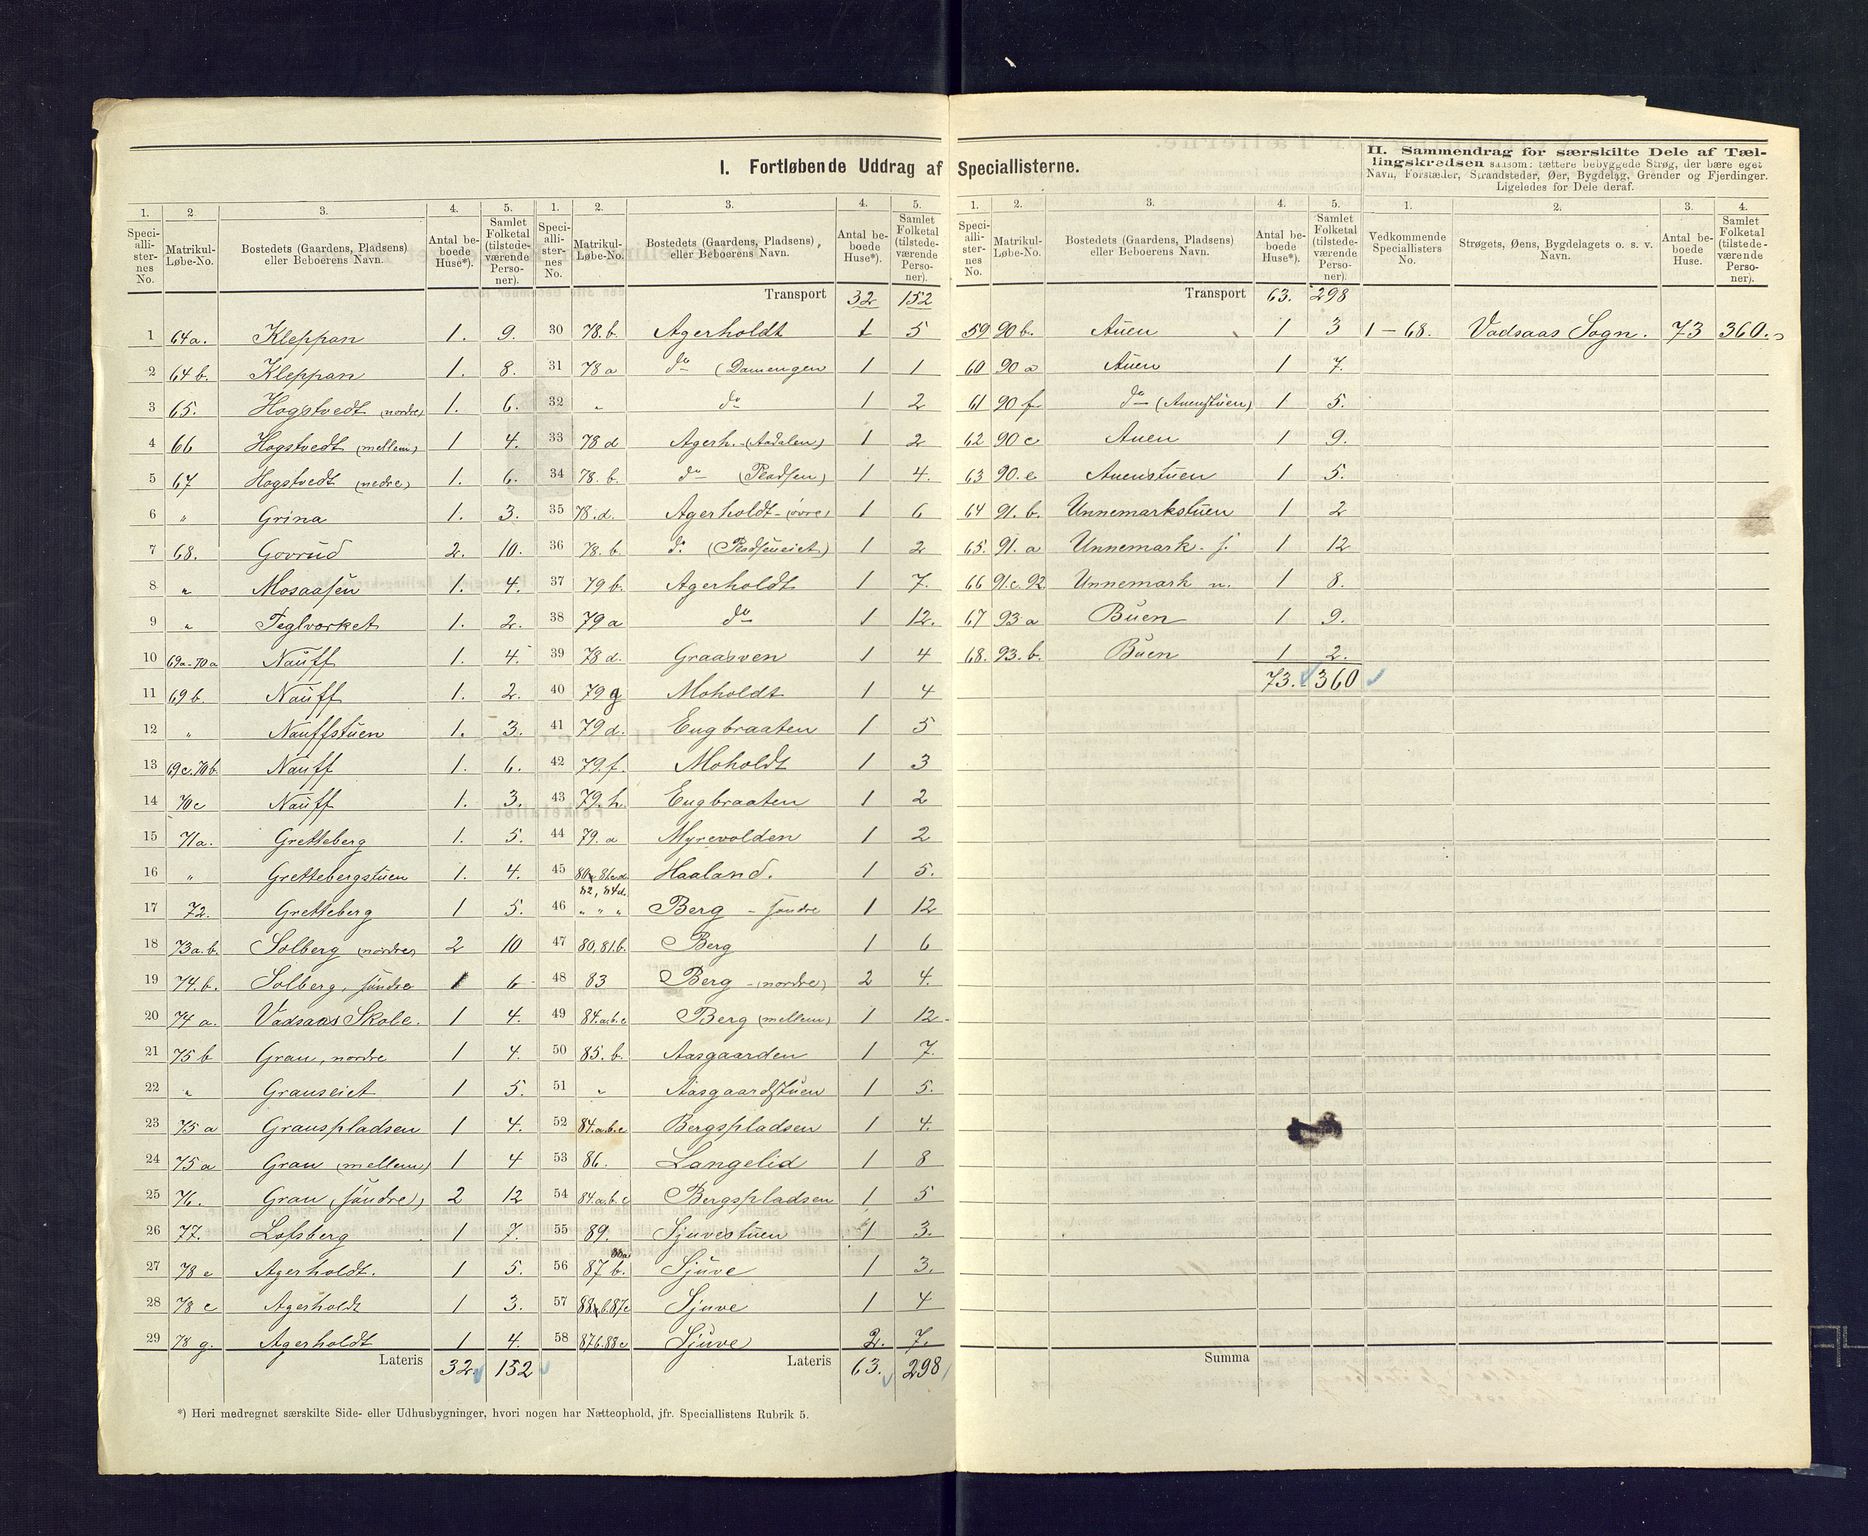 I. Fortløbende Uddrag af Speciallisterne.
II. Sammendrag for særskilte Dele af Tællingskredsen saasom: tættere bebyggede Strøg, der bære eget Navn, Forstæder, Strandsteder, Øer, Bygdelag, Grender og Fjerdinger. Ligeledes for Dele deraf.
1. 2. 3. 4. 5. 1. 2. 3. 4. 5.
Speciallisternes No. Matrikul-Løbe-No. Bostedets (Gaardens, Pladsens) eller Beboerens Navn. Antal beboede Huse*). Samlet Folketal (tilstedeværende Personer).
Speciallisternes No. Matrikul-Løbe-No. Bostedets (Gaardens, Pladsens), eller Beboerens Navn. Antal beboede Huse*). Samlet Folketal (tilstedeværende Personer).
1 64a. Kleppan 1. 9.
2 64 b. Kleppan 1. 8.
3 65. Hogstvedt (nordre) 1. 6.
4 66 Hogstvedt (mellem) 1 4.
5 67 Hogstvedt (nedre) 1. 6.
6 " Grina 1. 3.
7 68. Govrud 2. 10.
8 " Mosaasen 1. 4.
9 " Teglværket 1. 2.
10 69a-70a Nauff 1. 4.
11 69 b. Nauff 1. 2.
12 " Nauffstuen 1. 3.
13 69c.70b. Nauff 1. 6.
14 70c Nauff 1. 3.
15 71a. Gretteberg 1. 5.
16 " Grettebergstuen 1. 4.
17 72. Gretteberg 1 5.
18 73a.b. Solberg (nordre) 2 10
19 74.b. Solberg, søndre 1 6
20 74 a. Vadsaas Skole. 1 4.
21 75 b Gran, nordre 1 4.
22 " Granseiet 1 5.
23 75 a Granspladsen 1 4.
24 75 a Gran (mellem) 1 4
25 76. Gran (søndre) 2 12
26 77. Lofsberg 1 7.
27 78 e Agerholdt. 1 5.
28 78 c Agerholdt 1 3.
29 78 g. Agerholdt 1 4.
Lateris 32. 152
Transport 32 152
30 78.b. Agerholdt 1 5
31 78 a do (Damengen 1 1
32 " do 1 2
33 78 d Agerh. (Aadalen) 1 2
34 78. b. do (Pladsen) 1 4.
35 78.d. Agerholdt (øvre) 1 6
36 78. b. do (Pladseneiet) 1 2
37 79 b. Agerholdt 1 7.
38 79 a do 1 12.
39 78 d. Graasven 1 4
40 79 g Moholdt 1 4
41 79 d. Engbraaten 1 5
42 79.f. Moholdt 1 3
43 79.h. Engbraaten 1 2
44 79. a Myrevolden 1 2
45 Haaland. 1 5.
82, 84d.
46 " " " Berg - søndre 1 12
47 80,81.b. Berg 1 6
48 83 Berg - (nordre) 2 4.
49 84.a.b.c Berg (mellem) 1 12
50 85. b. Aasgaarden 1 7.
51 " Aasgaardstuen 1 5.
52 84.a.b.c Bergspladsen 1 4.
53 86. Langelid 1 8
54 84.a.b.c Bergspladsen 1 5
55 89. Sjuvestuen 1 3.
88a
56 87 b. Sjuve 1 3.
57 Sjuve 1 4
58 87b.88c Sjuve 2. 7.
Lateris 63. 298
*) Heri medregnet særskilte Side- eller Udhusbygninger, hvori nogen har Natteophold, jfr. Speciallistens Rubrik 5.
1. 2. 3. 4. 5. 1. 2. 3. 4.
Speciallisternes No. Matrikul-Løbe-No. Bostedets (Gaardens, Pladsens) eller Beboerens Navn. Antal beboede Huse*). Samlet Folketal (tilstedeværende Personer).
Vedkommende Speciallisters No. Strøgets, Øens, Bygdelagets o. s. v. Navn. Antal beboede Huse. Samlet Folketal (tilstedeværende Personer).
Transport 63. 298
59 90 b. Auen 1 3 1-68. Vadsaas Sogn. 73 360.
60 90 a Auen 1 7.
61 90 f do (Auenstuen) 1 5.
62 90 c Auen 1 9.
63 90. e Auenstuen 1 5.
64 91. b. Unnemarkstuen 1 2
65. 91. a Unnemark. s. 1 12
66 91.c.92 Unnemark n. 1 8.
67 93 a Buen 1 9.
68. 93. b. Buen 1 2.
73. 360
Summa